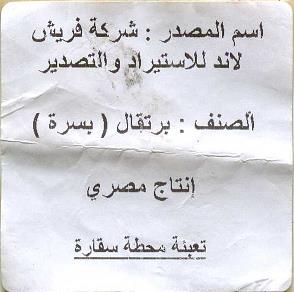 اسم المصدر : شركة فريش
لاند للاستيراد والتصدير
الصنف : برتقال ( بسرة )
إنتاج مصري
تعبئة محطة سقارة